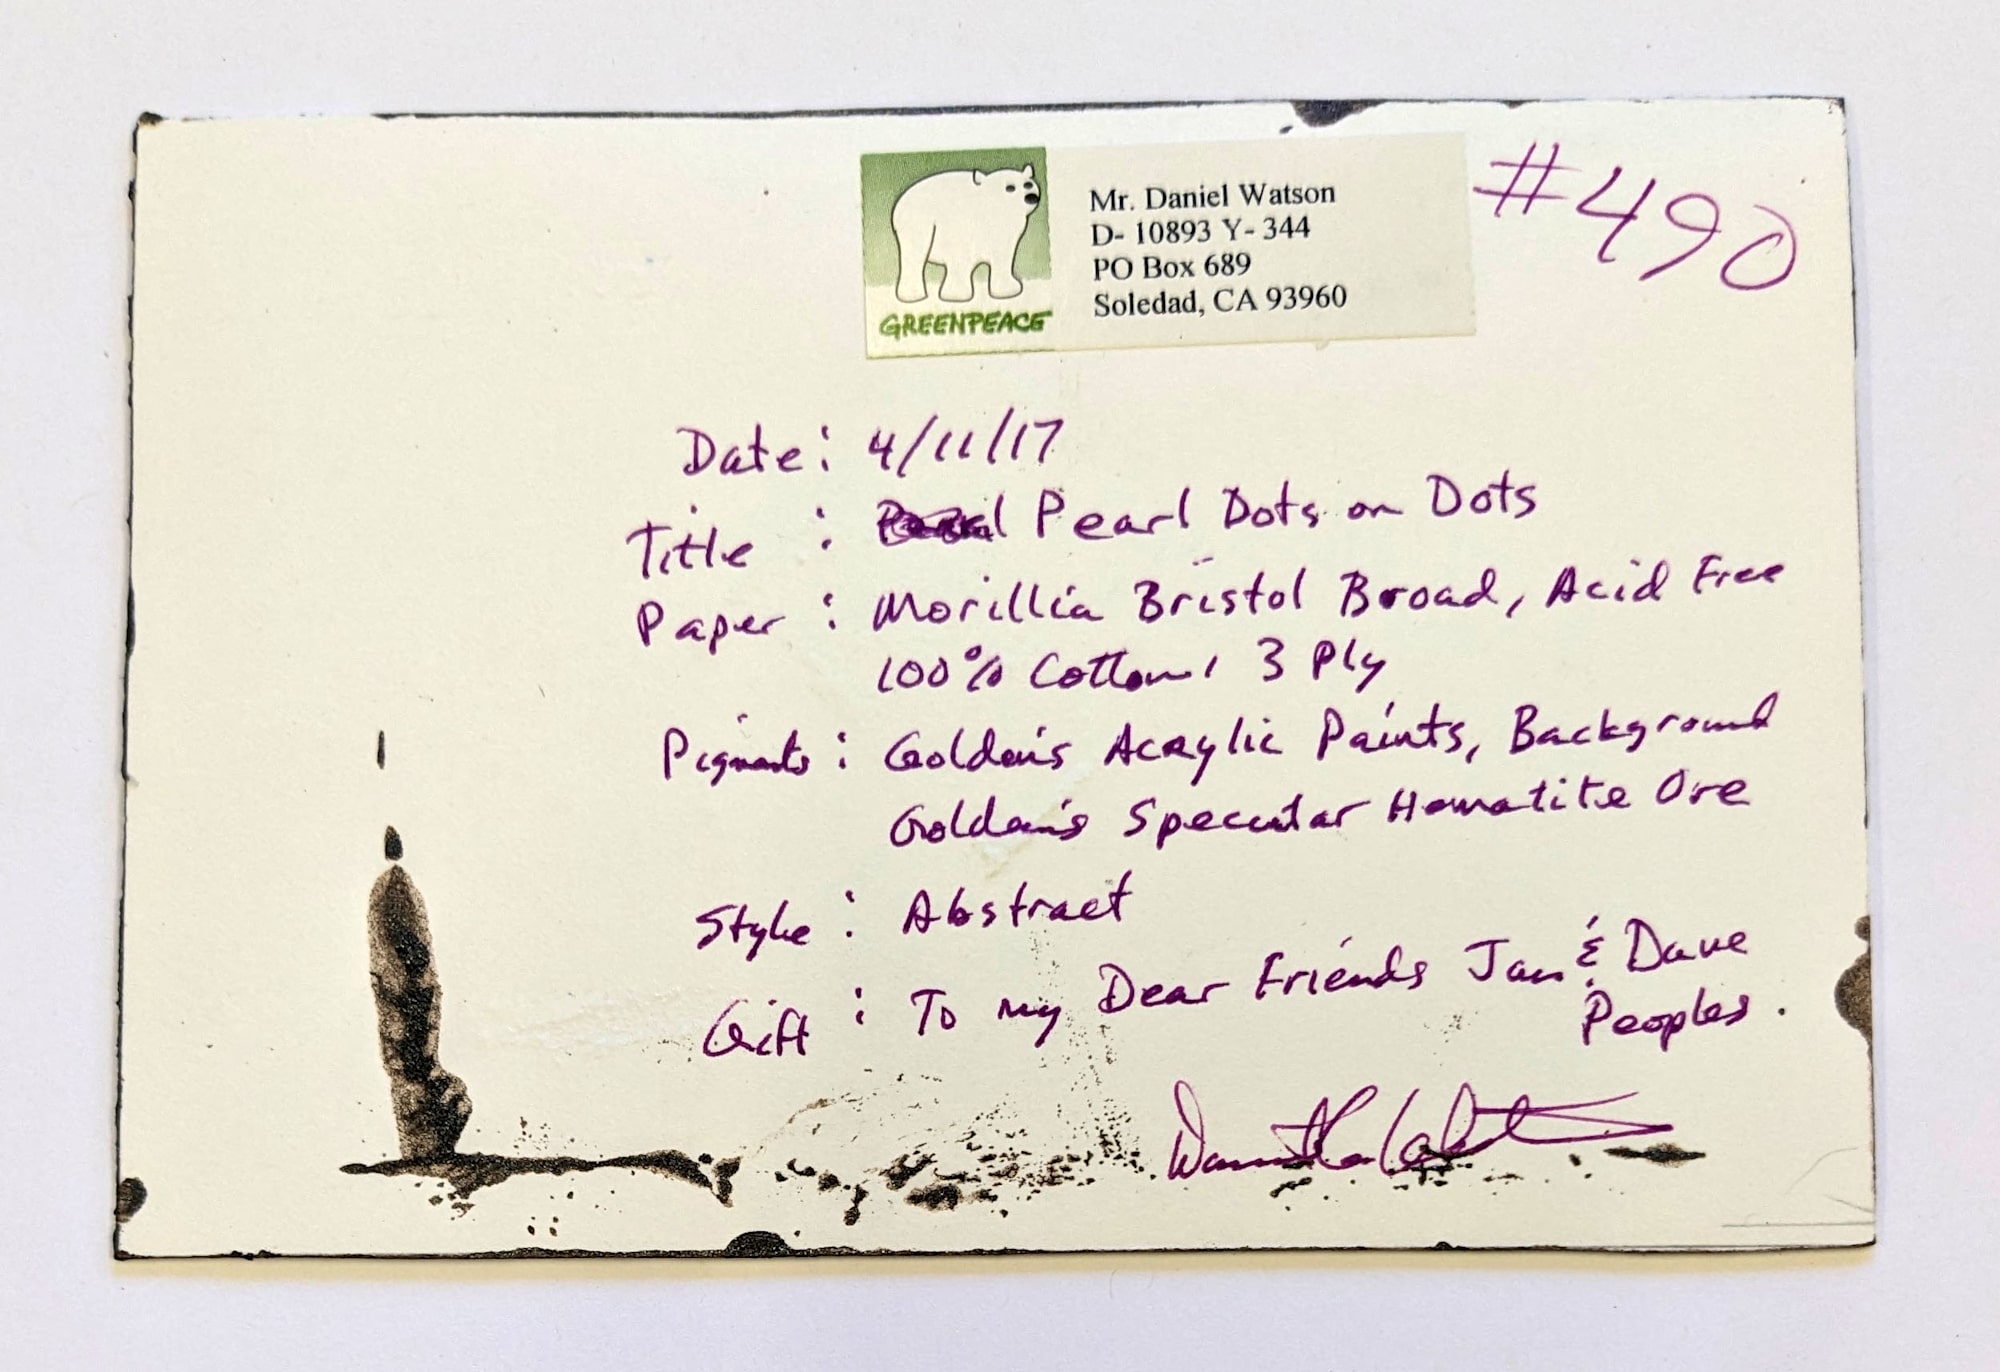 #490
GREENPEACE
Mr. Daniel Watson
D- 10893 Y- 344
PO Box 689
Soledad, CA 93960
Date: 4/11/17
Title : Pearl Dots on Dots
Paper : Morillia Bristol Broad, Acid Free
100% Cotton, 3 Ply
Pigments : Golden's Acrylic Paints, Background
Golden's Specular Hematite Ore
Style : Abstract
Gift : To my Dear Friends Jan & Dave
Peoples.